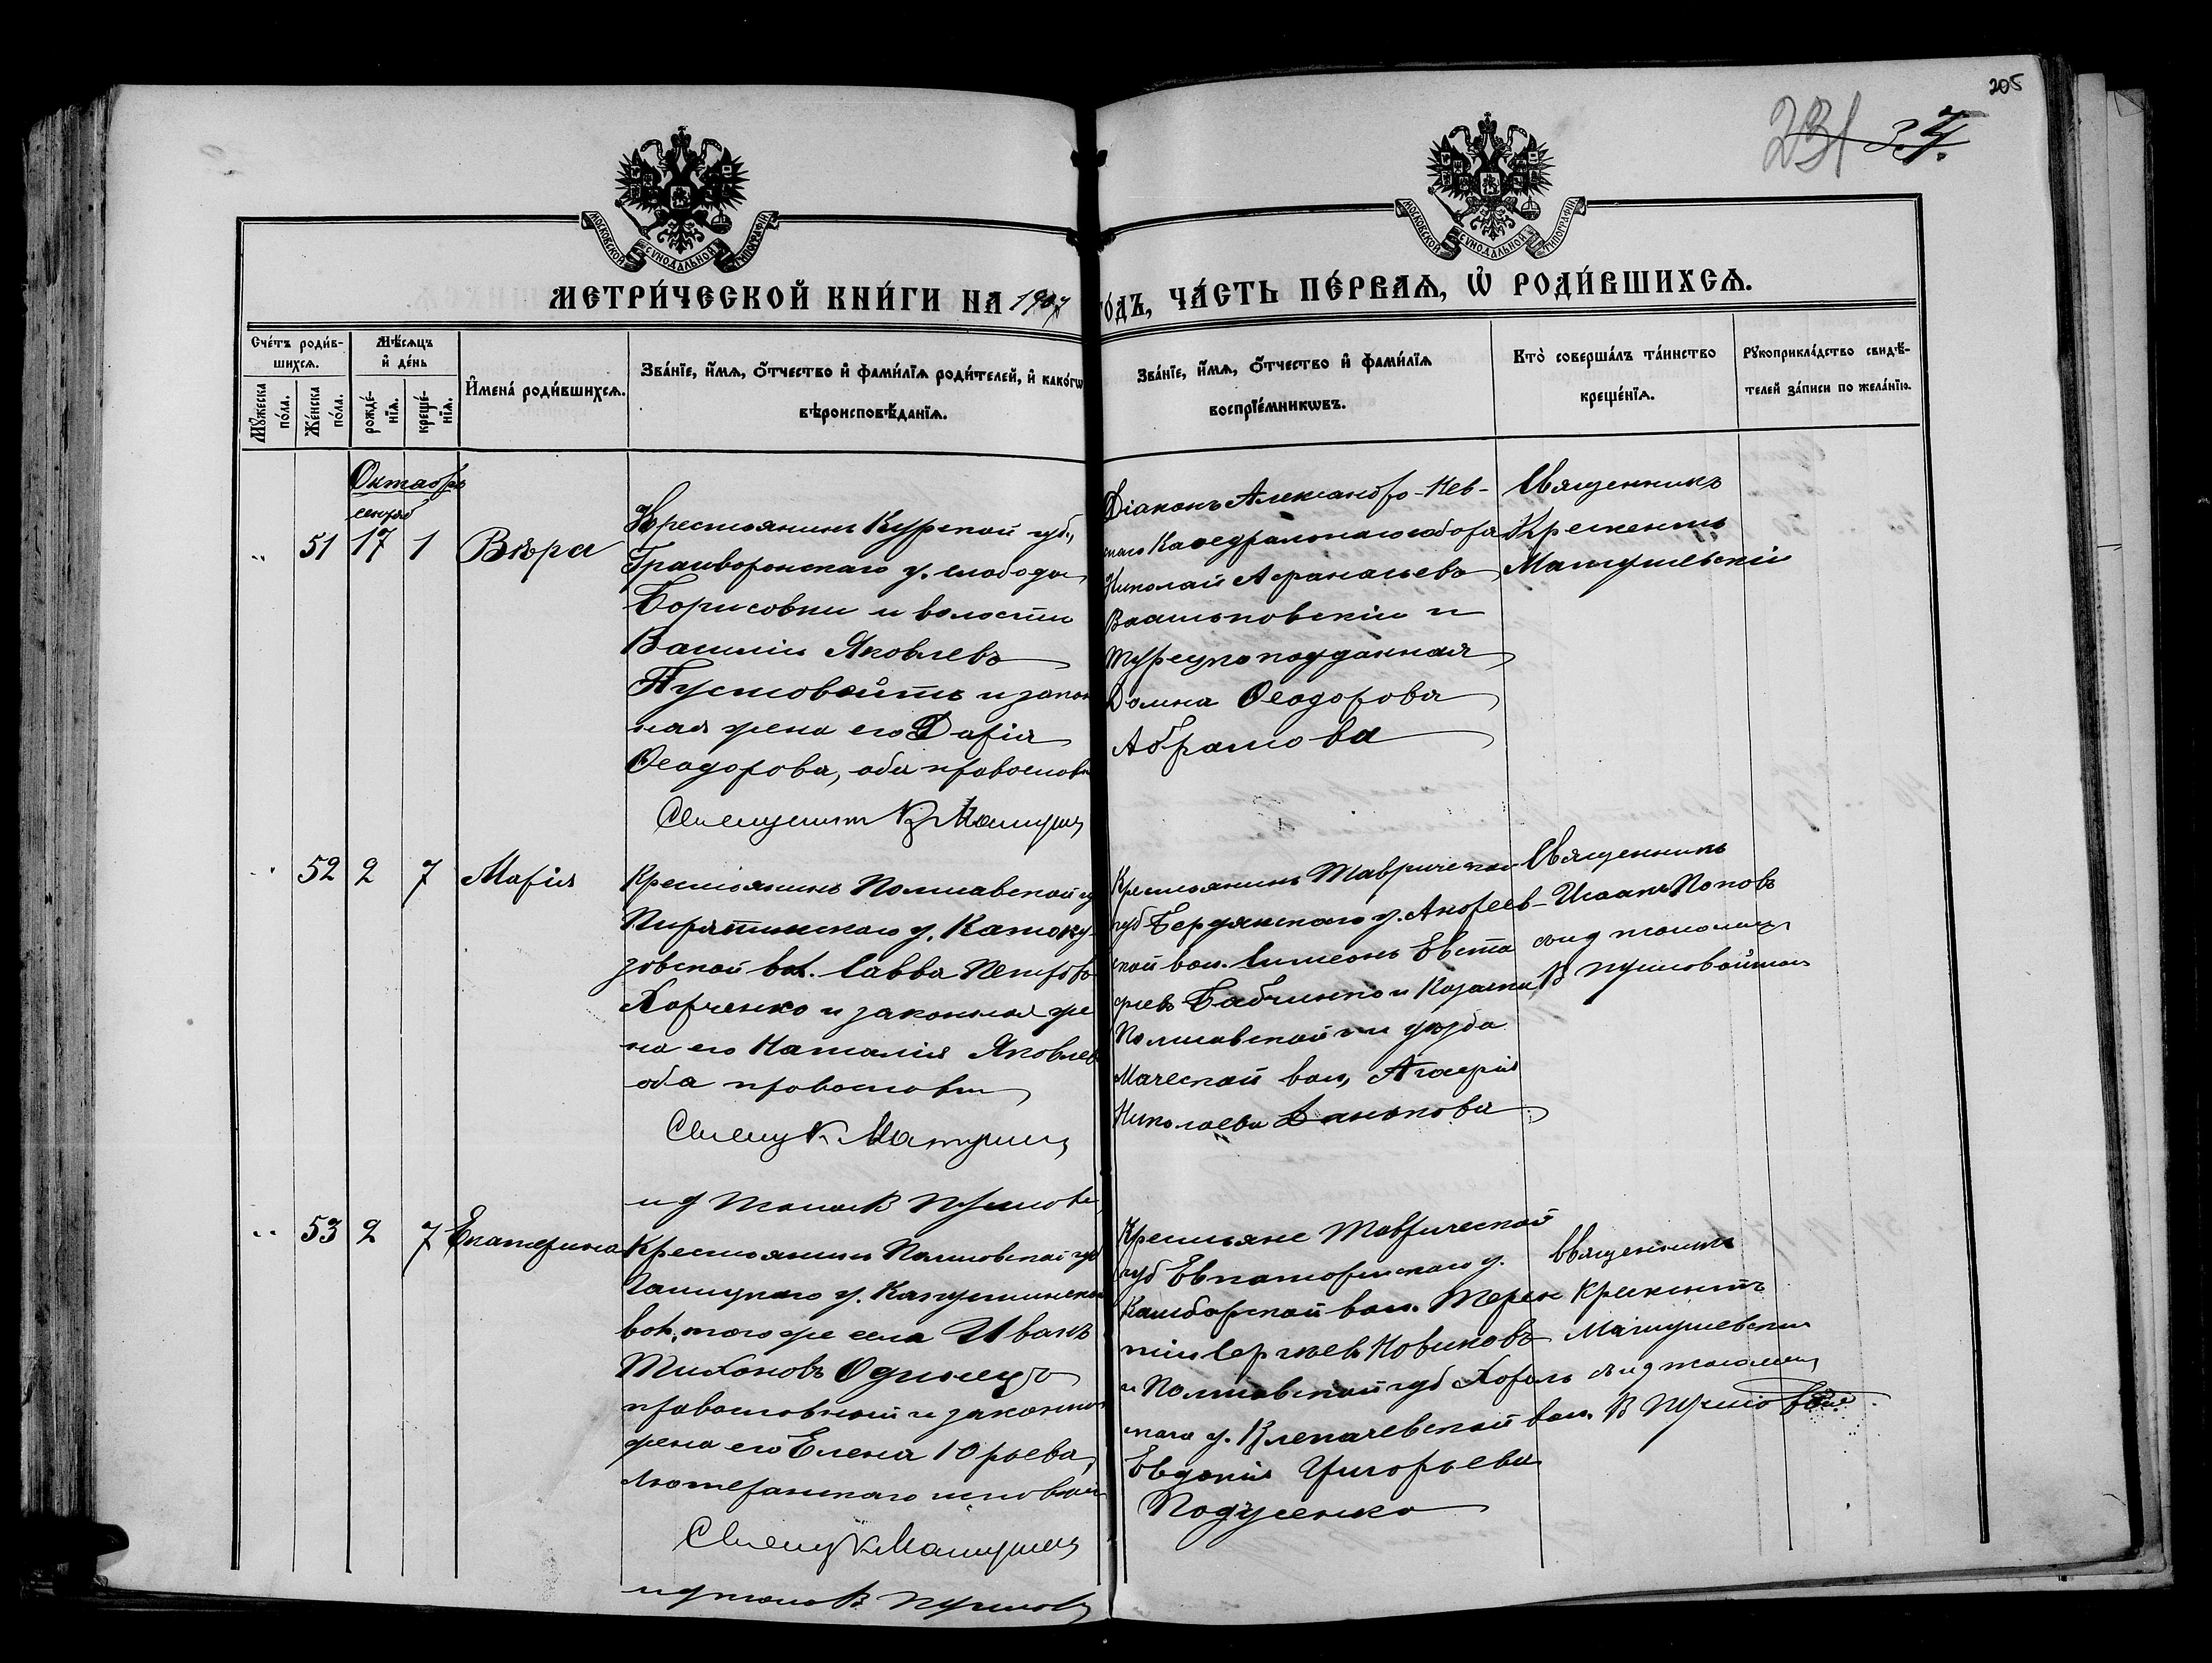 205
231 37.
МОСКОВСКОЙ СѴНОДАЛЬНОЙ ТИПОГРАФІИ
МОСКОВСКОЙ СѴНОДАЛЬНОЙ ТИПОГРАФІИ
МЕТРИ́ЧЕСКОЙ КНИ́ГИ НА 1907
ГО́ДЪ, ЧА́СТЬ ПЕ́РВАѦ, Ѡ҆ РОДИ́ВШИХСѦ.
Сче́тъ роди́в-
шихсѧ.
Мꙋ́жеска по́ла.
Же́нска по́ла.
Мѣ́сѧцъ
и҆ де́нь
рожде́-
нїѧ.
креще́-
нїѧ.
И҆мена̀ роди́вшихсѧ.
Зва́нїе, и҆́мѧ, ѻ҆́тчество и҆ фами́лїѧ роди́телей, и҆ како́гѡ
вѣроисповѣ́данїѧ.
Зва́нїе, и҆́мѧ, ѻ҆́тчество и҆ фами́лїѧ
воспрїе́мникѡвъ.
Кто̀ соверша́лъ та́инство
креще́нїѧ.
Рꙋкоприкла́дство свидѣ́-
телей за́писи по жела́нїю.
Октабрь
сентяб
51 17 1 Вѣра
Крестьянинъ Курской губ.,
Грайворонскаго у. слободы
Борисовки и волости
Василій Яковлевъ
Пустовойтъ и закон
ная жена его Дарія
Ѳеодорова, оба православ
Діаконъ Александро-Нев-
скаго Каѳедральнаго собора
Николай Аѳанасьевъ
и
турецкоподданная
Домна Ѳеодорова
Абрамова
Священникъ
Крискентъ
Матушевскій
52 2 7 Марія
Крестьянинъ Полтавской г
Пирятинскаго у.
вол. Савва Петровъ
Харченко и законная же
на его Наталія Яковлев
оба православн
Крестьянинъ Таврической
губ Бердянскаго у. Андреев-
ской вол. Симеонъ Евста
фіевъ Бабченко и Козачка
Полтавской г и уѣзда
Мачехской вол,
Николаева
Священникъ
Исаакъ Поповъ
В Пустовойтов
53 2 7 Екатерина
Крестьянинъ Полтавской губ
у. Капустинской
вол. того же села Иванъ
Тихоновъ Одинецъ
православный и законная
жена его Елена Юрьева,
лютеранскаго исповѣд
Крестьяне Таврической
губ Евпаторійскаго у.
Камбарской вол. Терен
тій Сергѣевъ Новиковъ
и Полтавской губ Хороль
скаго у. Клепачевской вол.
Евдокія Григорьева
Священникъ
Крискентъ
Матушевскій